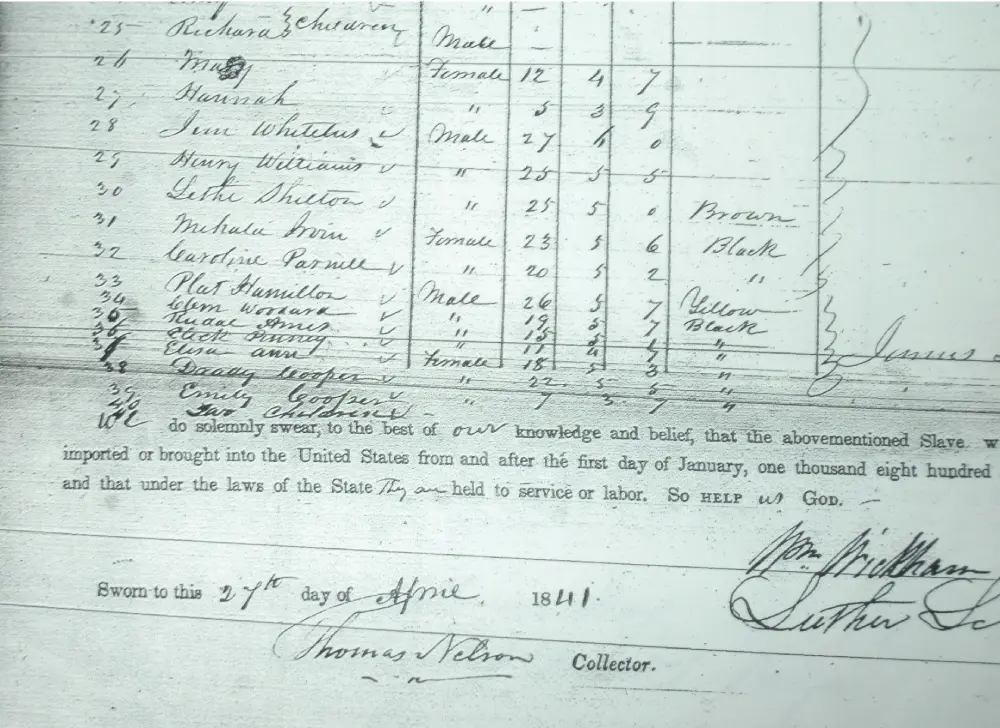 "
25 Richard } Children Male
26 Mary Female 12 4 7
27 Hannah " 5 3 9
28 Jim Male 27 6 0
29 Henry Williams " 25 5 5
30 Lethe Shelton " 25 5 0 Brown
31 Mehala Irvin Female 23 5 6 Black
32 Caroline Parnell " 20 5 2 "
33 Plat Hamilton Male 26 5 7 Yellow
34 Clem Woodard " 19 5 7 Black
Ames " 15 5 "
36 " 11 4 "
37 Eliza Ann Female 18 5 3 "
38 Cooper " 22 5 5 "
39 Emily Cooper " 7 3 7 "
40 Two Children
James
We do solemnly swear, to the best of our knowledge and belief, that the abovementioned Slave w
imported or brought into the United States from and after the first day of January, one thousand eight hundred
and that under the laws of the State They are held to service or labor. So help us God.
Wm Wickham
Luther
Sworn to this 27th day of April 1841.
Thomas Nelson Collector.